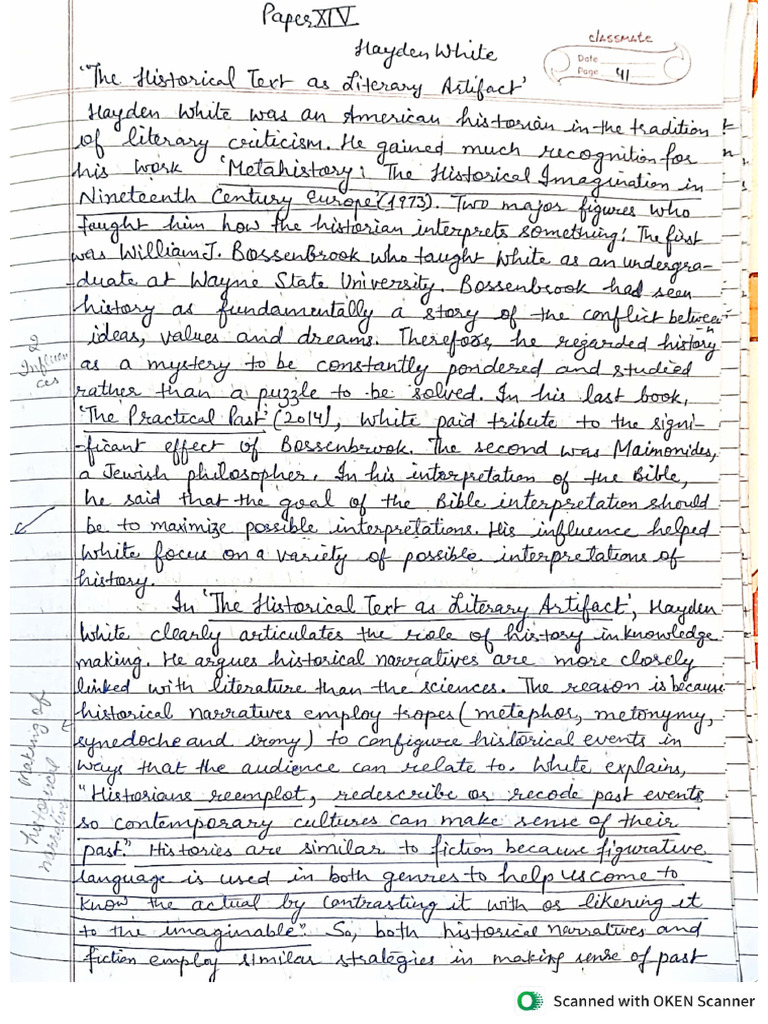 Paper XIV
Hayden White
classmate
Date
Page 41
'The Historical Text as Literary Artifact'
Hayden White was an American historian in the tradition
of literary criticism. He gained much recognition for
his work 'Metahistory: The Historical Imagination in
Nineteenth Century Europe' (1973). Two major figures who
taught him how the historian interprets something: The first
was William J. Bossenbrook who taught White as an undergra-
-duate at Wayne State University. Bossenbrook had seen
history as fundamentally a story of the conflict betwee-
-n
ideas, values and dreams. Therefore, he regarded history
2
Influen
ces
as a mystery to be constantly pondered and studied
rather than a puzzle to be solved. In his last book,
'The Practical Past' (2014), White paid tribute to the signi-
-ficant effect of Bossenbrook. The second was Maimonides,
a Jewish philosopher. In his interpretation of the Bible,
he said that the goal of the Bible interpretation should
be to maximize possible interpretations. His influence helped
White focus on a variety of possible interpretations of
history.
In 'The Historical Text as Literary Artifact', Hayden
White clearly articulates the role of history in knowledge
making. He argues historical narratives are more closely
linked with literature than the sciences. The reason is because
historical narratives employ tropes (metaphor, metonymy,
synedoche and irony) to configure historical events in
ways that the audience can relate to. White explains,
Making of
historical
narrative
"Historians reemplot, redescribe or recode past events
so contemporary cultures can make sense of their
past." Histories are similar to fiction because figurative
language is used in both genres to help us come to
know the actual by contrasting it with or likening it
to the imaginable". So, both historical narratives and
fiction employ similar strategies in making sense of past
Scanned with OKEN Scanner